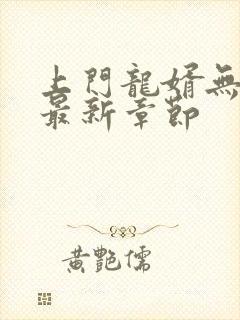 上門龍婿無
最新章節
黃艷儒